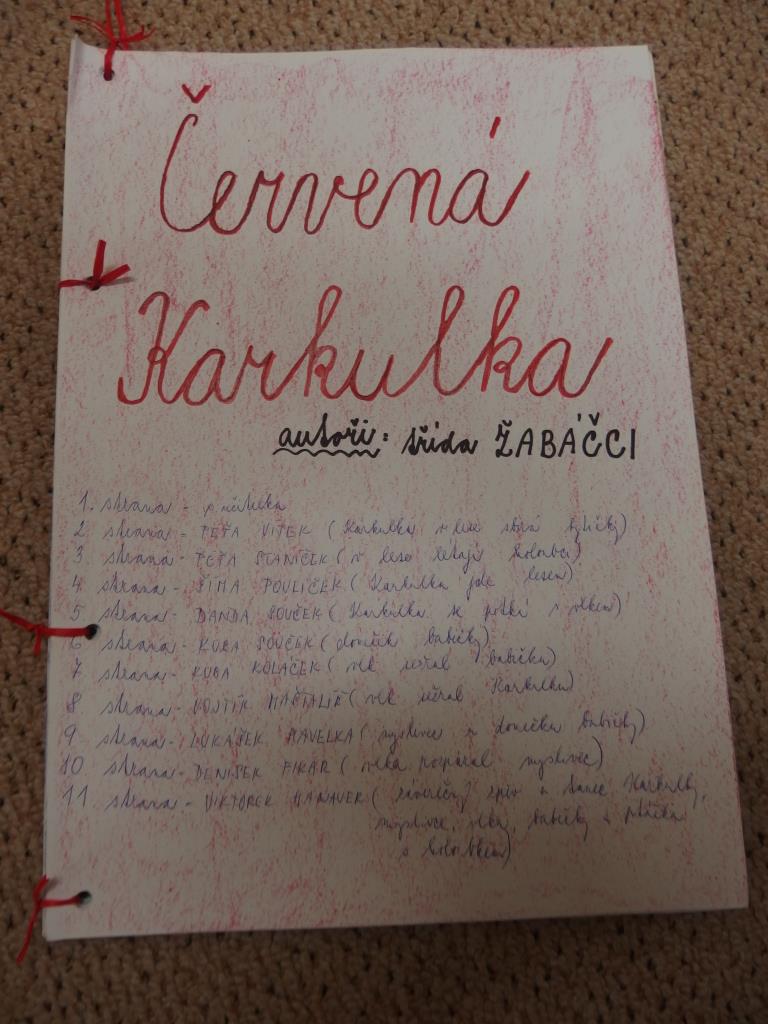 Červená
Karkulka
autoři: třída ŽABÁČCI
1. strana - p. učitelka
2 strana - PÉŤA VÍTEK (Karkulka v lese sbírá kytičky)
3 strana - PÉŤA STANÍČEK (v lese létají holoubci)
4 strana - ŠÍMA POULÍČEK (Karkulka jde lesem)
5 strana - DANDA SOUČEK (Karkulka se potká s vlkem)
6 strana - KUBA SOUČEK (domeček babičky)
7 strana - KUBA KOLÁČEK (vlk sežral babičku)
8 strana - VOJTÍK (vlk sežral Karkulku)
9 strana - LUKÁŠEK HAVELKA (myslivec u domečku babičky)
10 strana - DENISEK FIKAR (vlka rozpáral myslivec)
11 strana - VIKTOREK HANAUER (závěrečný zpěv a tanec Karkulky,
myslivce, vlka, babičky a ptáčka
s holoubkem)